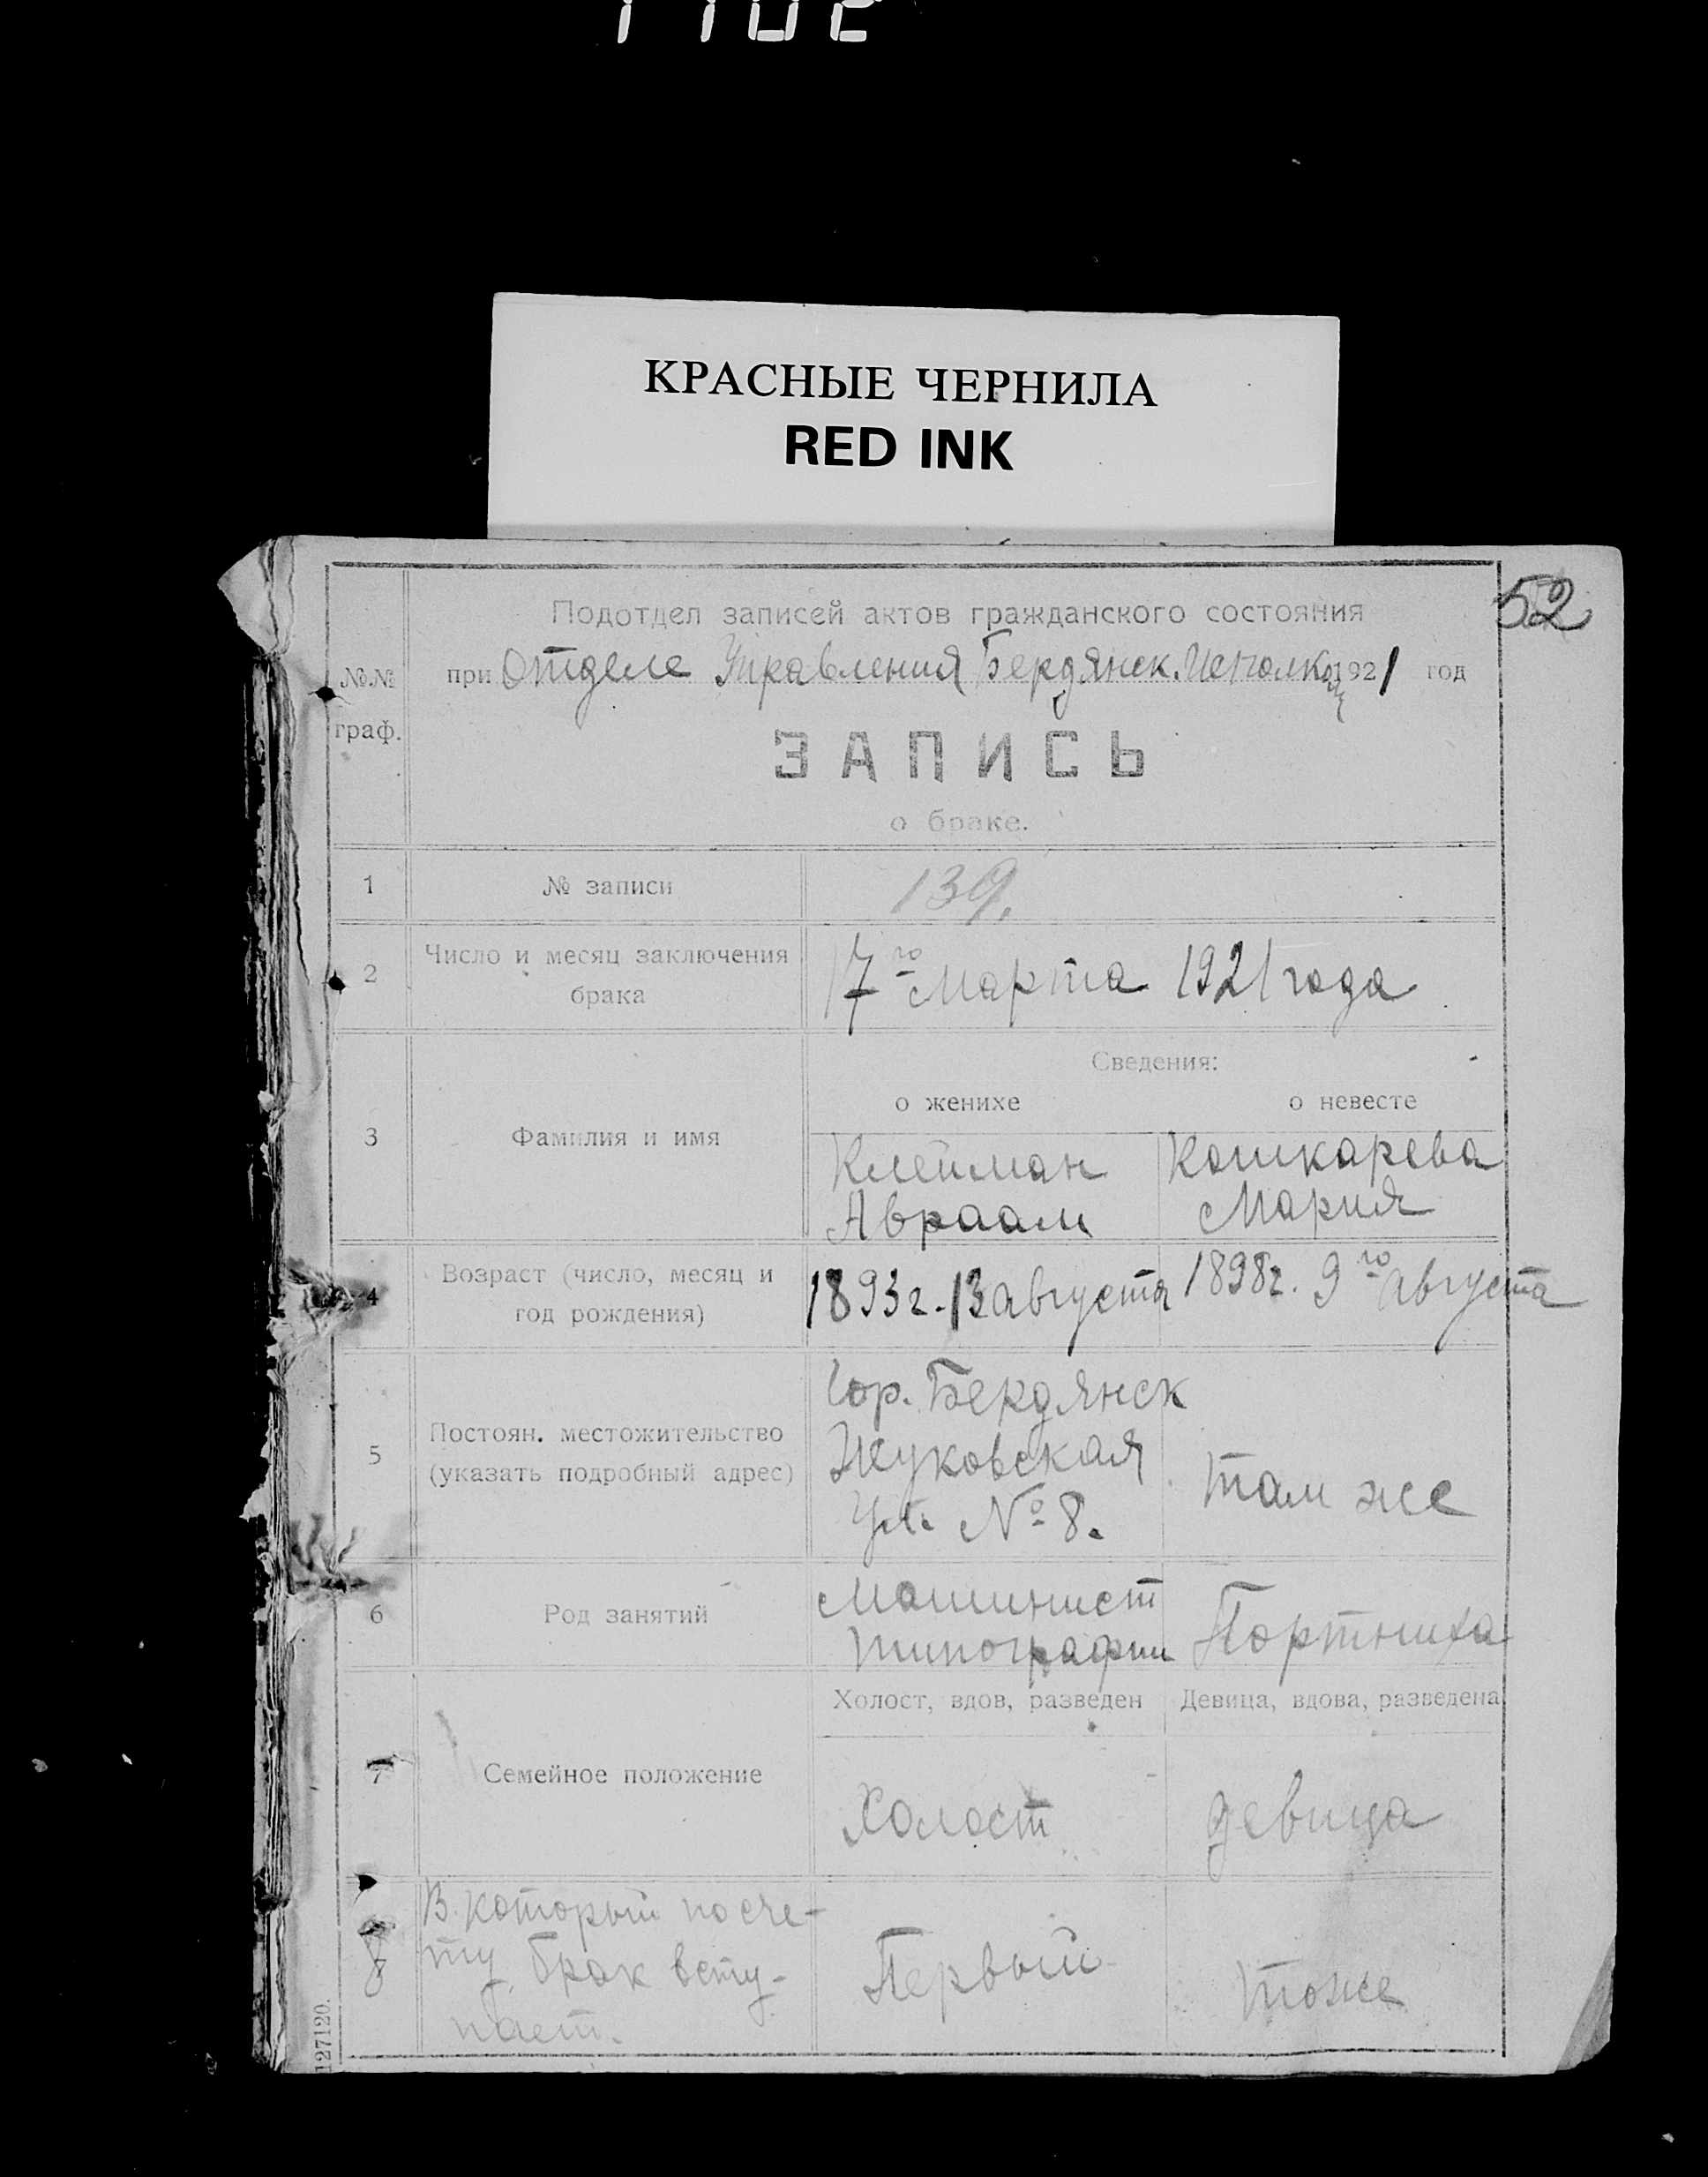 КРАСНЫЕ ЧЕРНИЛА
RED INK
52
Подотдел записей актов гражданского состояния
№№ граф.
при Отделе Управления Бердянск. Исполкома 1921 год
ЗАПИСЬ
о браке.
1 № записи 139.
2 Число и месяц заключения
брака
17го Марта 1921 года
Сведения:
о женихе о невесте
3 Фамилия и имя
Клейман Кошкарева
Авраам Мария
4 Возраст (число, месяц и
год рождения)
1893г. 13 августа 1898г. 9го Августа
5 Постоян. местожительство
(указать подробный адрес)
Гор. Бердянск
Жуковская
ул. № 8.
там же
6 Род занятий
Машинист
типографии
Портниха
Холост, вдов, разведен Девица, вдова, разведена
7 Семейное положение
Холост девица
8 В который по сче-
ту брак всту-
пает.
Первый тоже
127120.